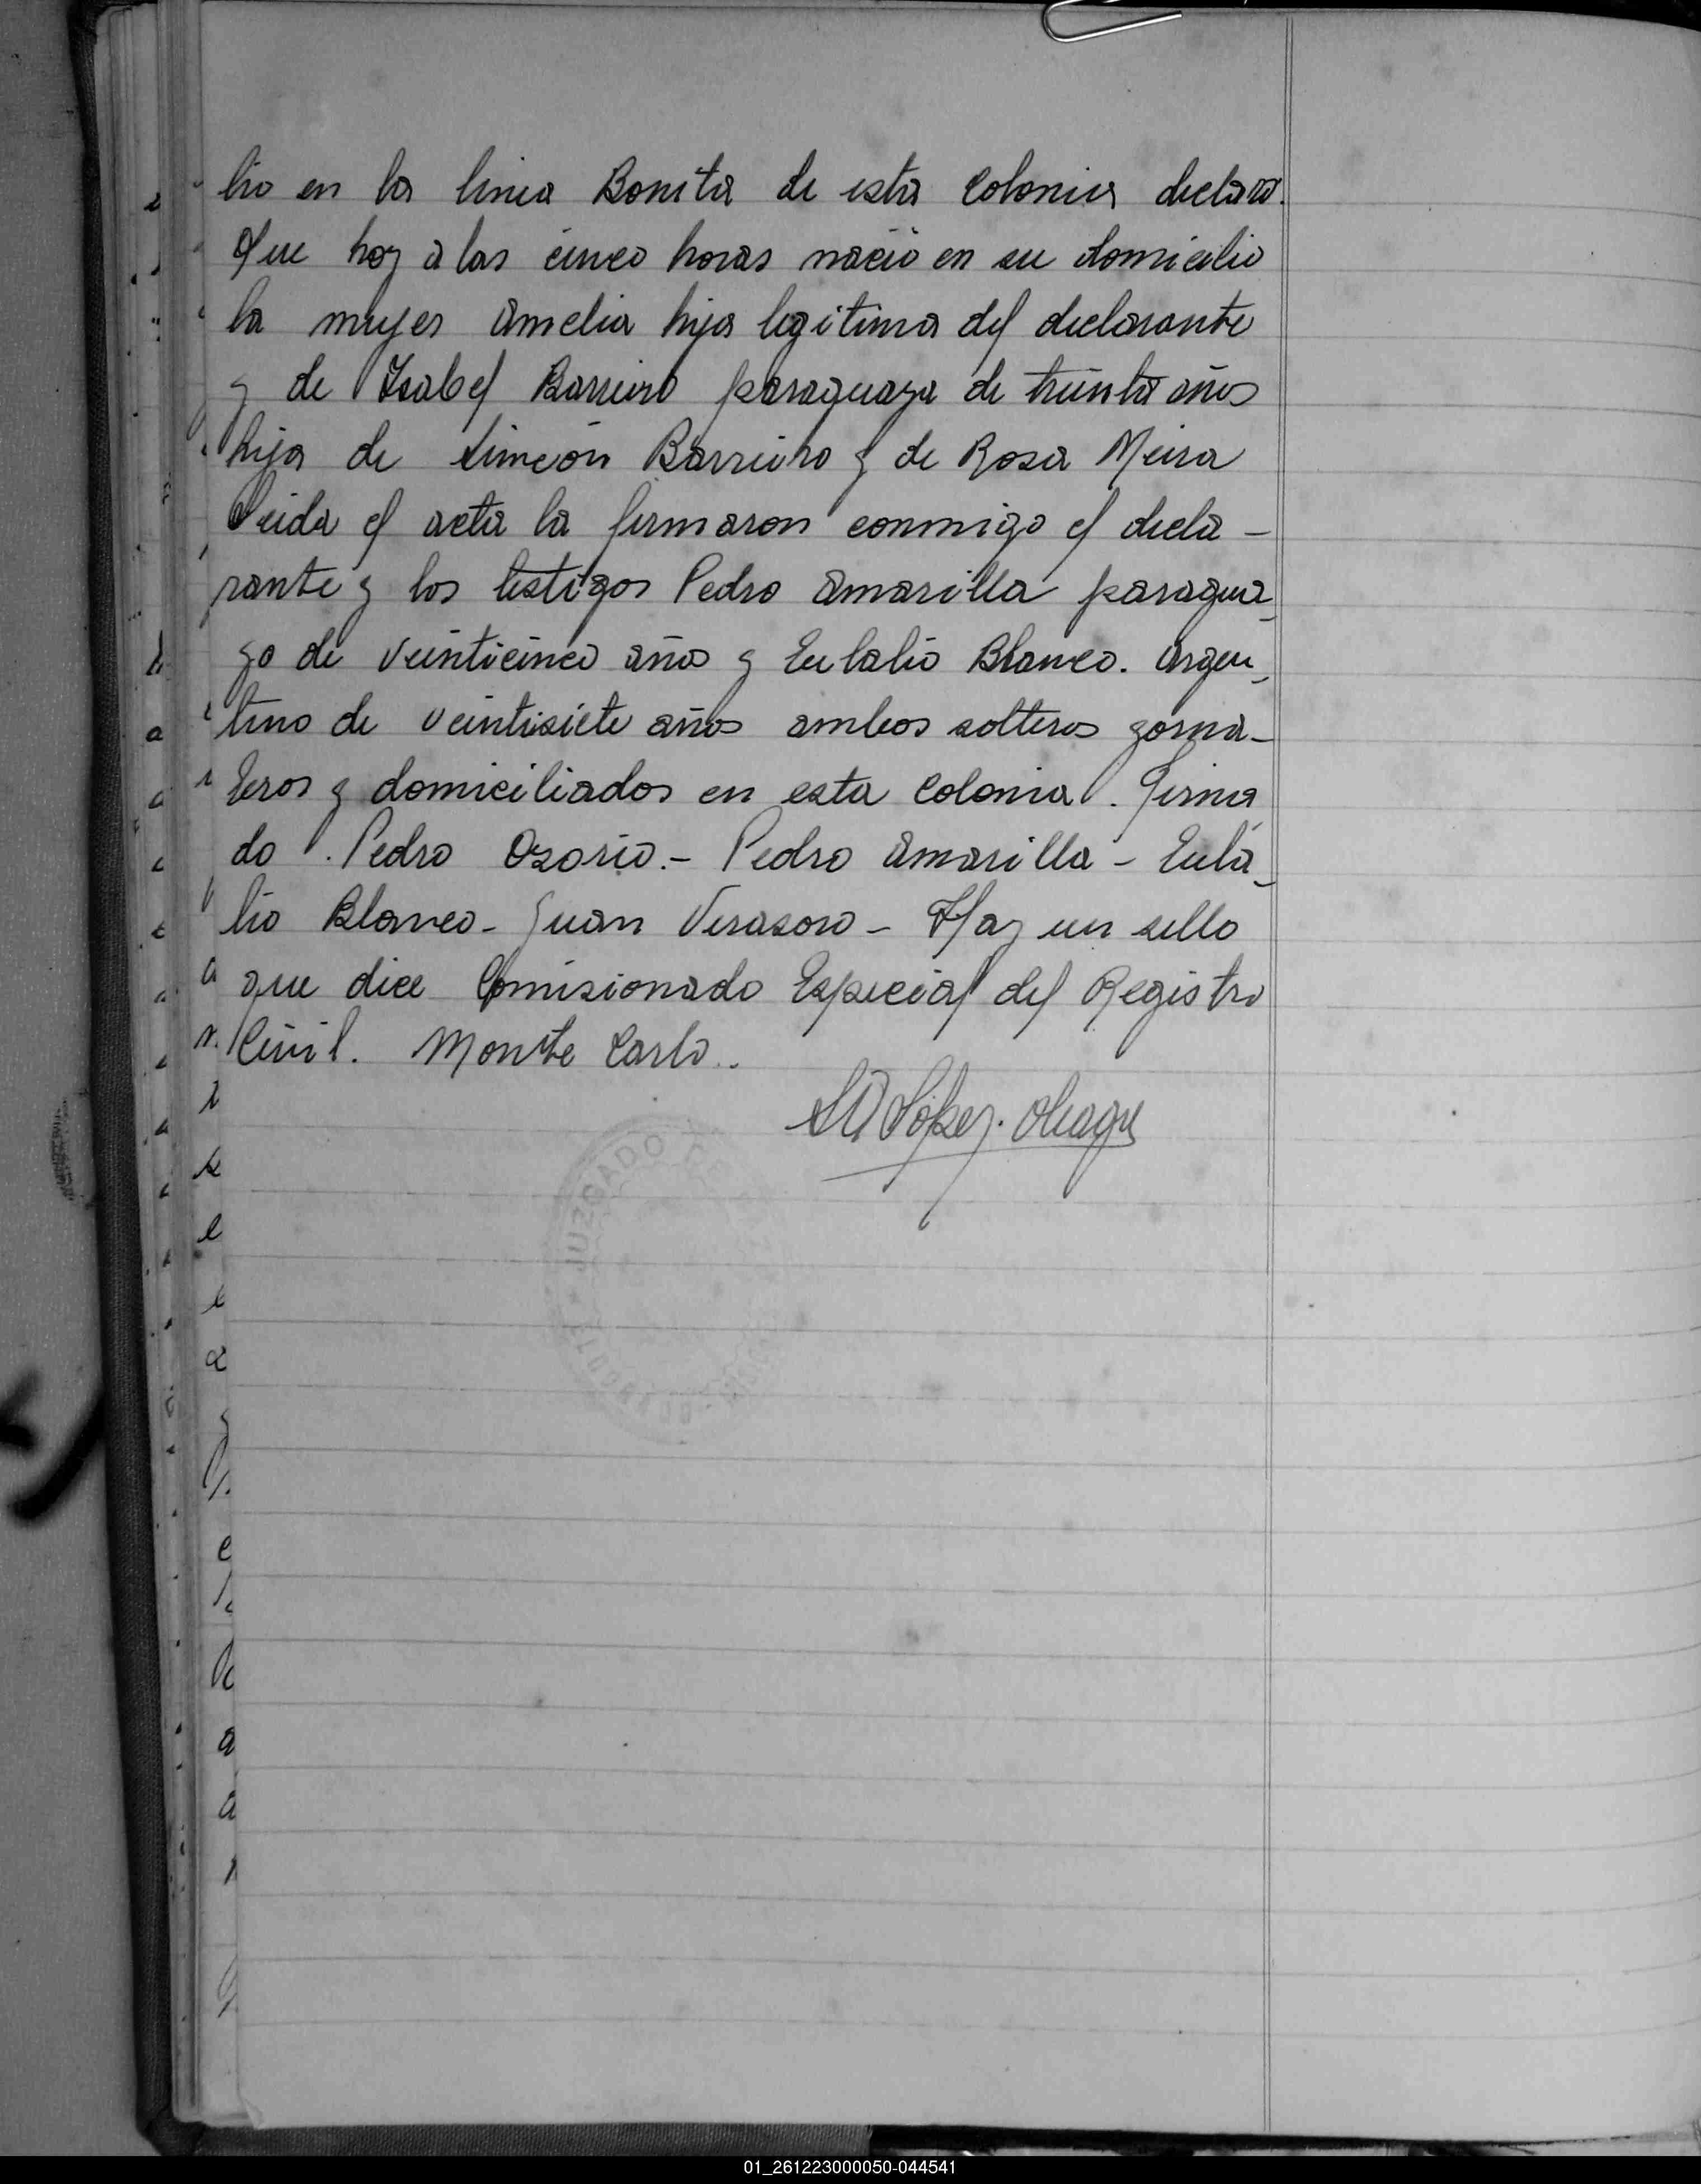 lio en la linea Bonita de esta Colonia declaro.
Que hoy a las cinco horas nació en su domicilio
la mujer Amelia hija legitima del declarante
y de Isabel Barreiro paraguaya de treinta años
hija de Simeón Barreiro y de Rosa Meira
Leida el acta la firmaron conmigo el decla-
rante y los testigos Pedro Amarilla paragua-
yo de veinticinco año y Eulalio Blanco. Argen-
tino de veintisiete años ambos solteros jorna-
leros y domiciliados en esta Colonia. Firma
do. Pedro Ozorio.- Pedro Amarilla - Eula-
lio Blanco - Juan Verasoro - Hay un sello
que dice Comisionado Especial del Registro
Civil. Monte Carlo..
López
JUZGADO DE
01_261223000050-044541